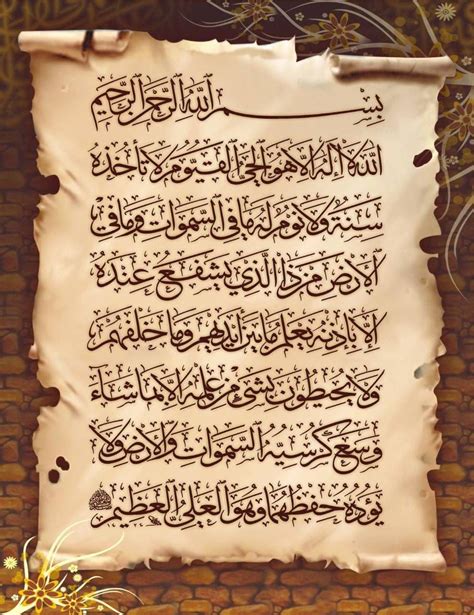 بسم الله الرحمن الرحيم
الله لا إله إلا هو الحي القيوم لا تأخذه
سنة ولا نوم له ما في السموات وما في
الارض من ذا الذي يشفع عنده
الا باذنه يعلم ما بين ايديهم وما خلفهم
ولا يحيطون بشيء من علمه الا بما شاء
وسع كرسيه السموات والارض ولا
يؤده حفظهما وهو العلي العظيم